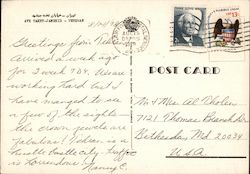 AVE TAKHT-JAMSHID - TEHERAN
Greetings from Teh
arrived a week ago
for 3 week TDY. We are
working hard but I
have managed to see
a few of the sights -
the crown jewels are
fabulous! Tehran is a
bustling city, traffic
is horrendous! Nancy E.
POST CARD
Mr & Mrs Al Tholen
7121 Thomas Branch Dr
Bethesda, Md. 20034
U.S.A.